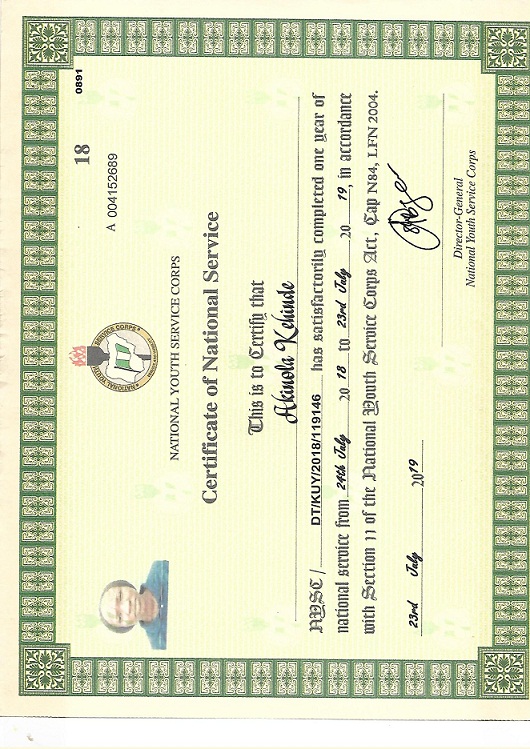 18
0891
A 004152689
NATIONAL YOUTH SERVICE CORPS
Certificate of National Service
This is to Certify that
Akinola Kehinde
NYSC / DT/KUY/2018/119146 has satisfactorily completed one year of
national service from 24th July 20 18 to 23rd July 20 19, in accordance
with Section 11 of the National Youth Service Corps Act, Cap N84, LFN 2004.
23rd July 2019
Director-General
National Youth Service Corps